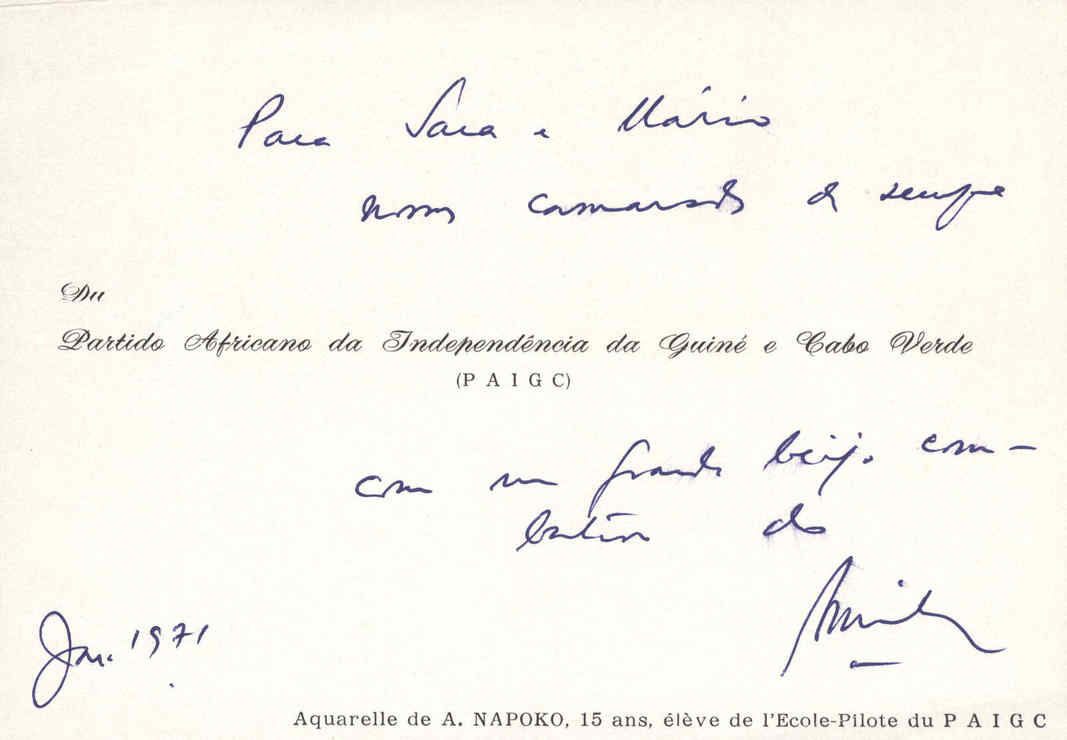 Para Sara e Mário
nossos camaradas de sempre
Du
Partido Africano da Independência da Guiné e Cabo Verde
(P A I G C)
com um grande beijo com-
bativo do
Amílcar
Jan. 1971
Aquarelle de A. NAPOKO, 15 ans, élève de l'Ecole-Pilote du P A I G C